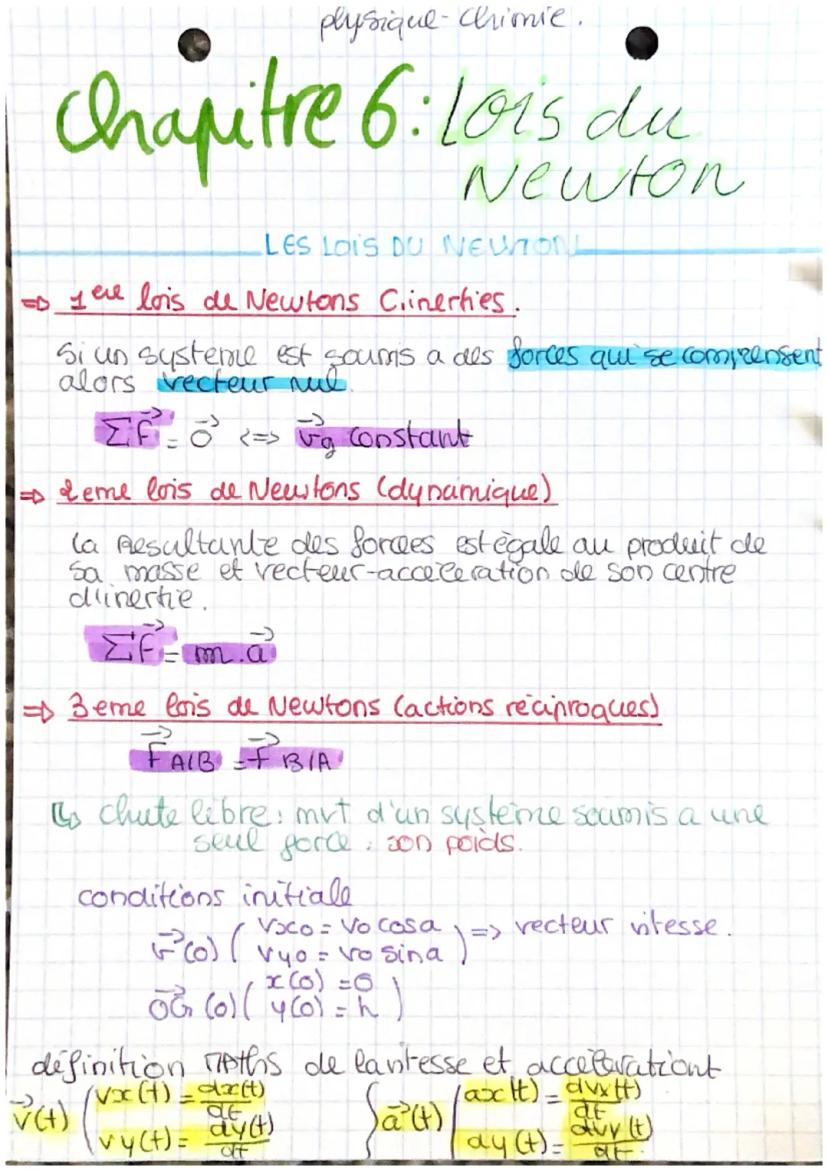 physique-chimie.
Chapitre 6: lois du
Newton
LES LOIS DU NEWTON
=> 1ere lois de Newtons (inerties.
Si un systeme est soumis a des forces qui se compensent
alors vecteur nul.
ΣF⃗ = 0⃗ <=> v⃗g constant
=> 2eme lois de Newtons (dynamique)
la resultante des forces est égale au produit de
sa masse et vecteur-acceleration de son centre
d'inertie.
ΣF⃗ = m.a⃗
=> 3eme lois de Newtons (actions réciproques)
F⃗ A/B = F⃗ B/A
↳ chute libre: mvt d'un système soumis a une
seul force: son poids.
conditions initiale
v⃗(0) ( vx0 = v0 cosa
vy0 = v0 sina ) => vecteur vitesse.
OG⃗ (0) ( x(0) = 0
y(0) = h )
définition maths de la vitesse et accélérationt
v⃗(t) ( vx(t) = dx(t)/dt { a⃗(t) ( ax(t) = dvx(t)/dt
vy(t) = dy(t)/dt ay(t) = dvy(t)/dt